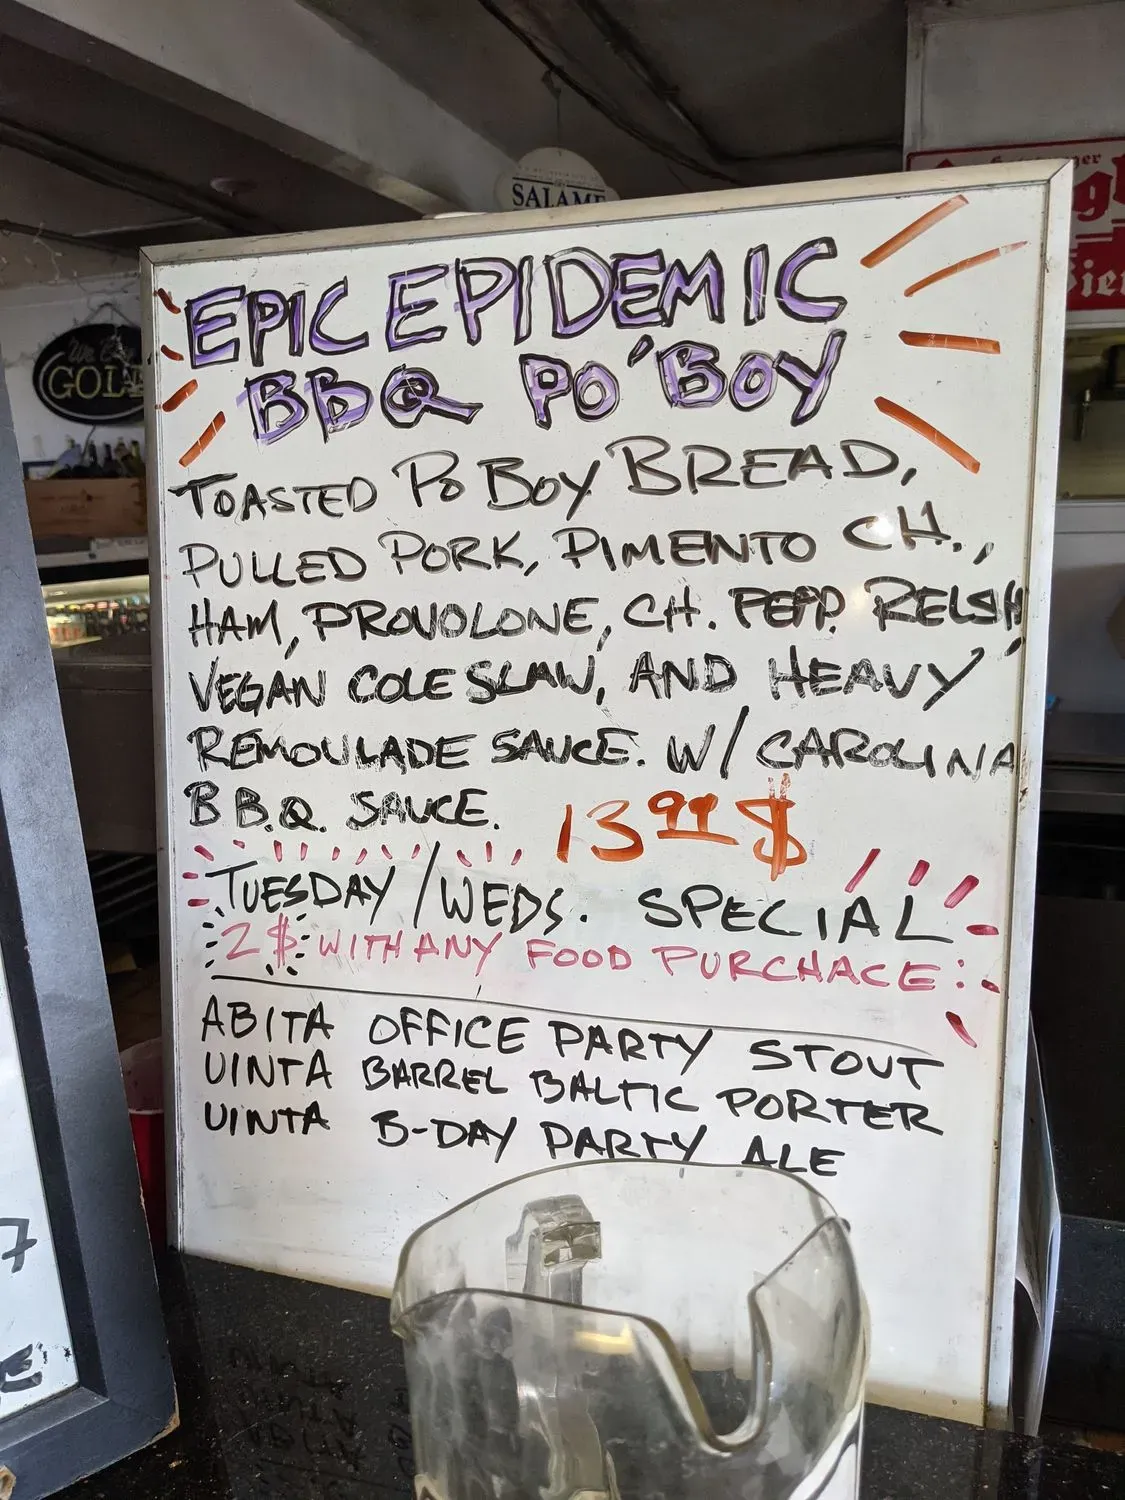 SALAME
EPIC EPIDEMIC
BBQ PO'BOY
TOASTED PO BOY BREAD,
PULLED PORK, PIMENTO CH.,
HAM, PROVOLONE, CH. PEPP. RELSH,
VEGAN COLESLAW, AND HEAVY
REMOULADE SAUCE. W/ CAROLINA
B B.Q. SAUCE. 13 99 $
TUESDAY/WEDS. SPECIAL
2$ WITH ANY FOOD PURCHACE:
ABITA OFFICE PARTY STOUT
UINTA BARREL BALTIC PORTER
UINTA B-DAY PARTY ALE
7